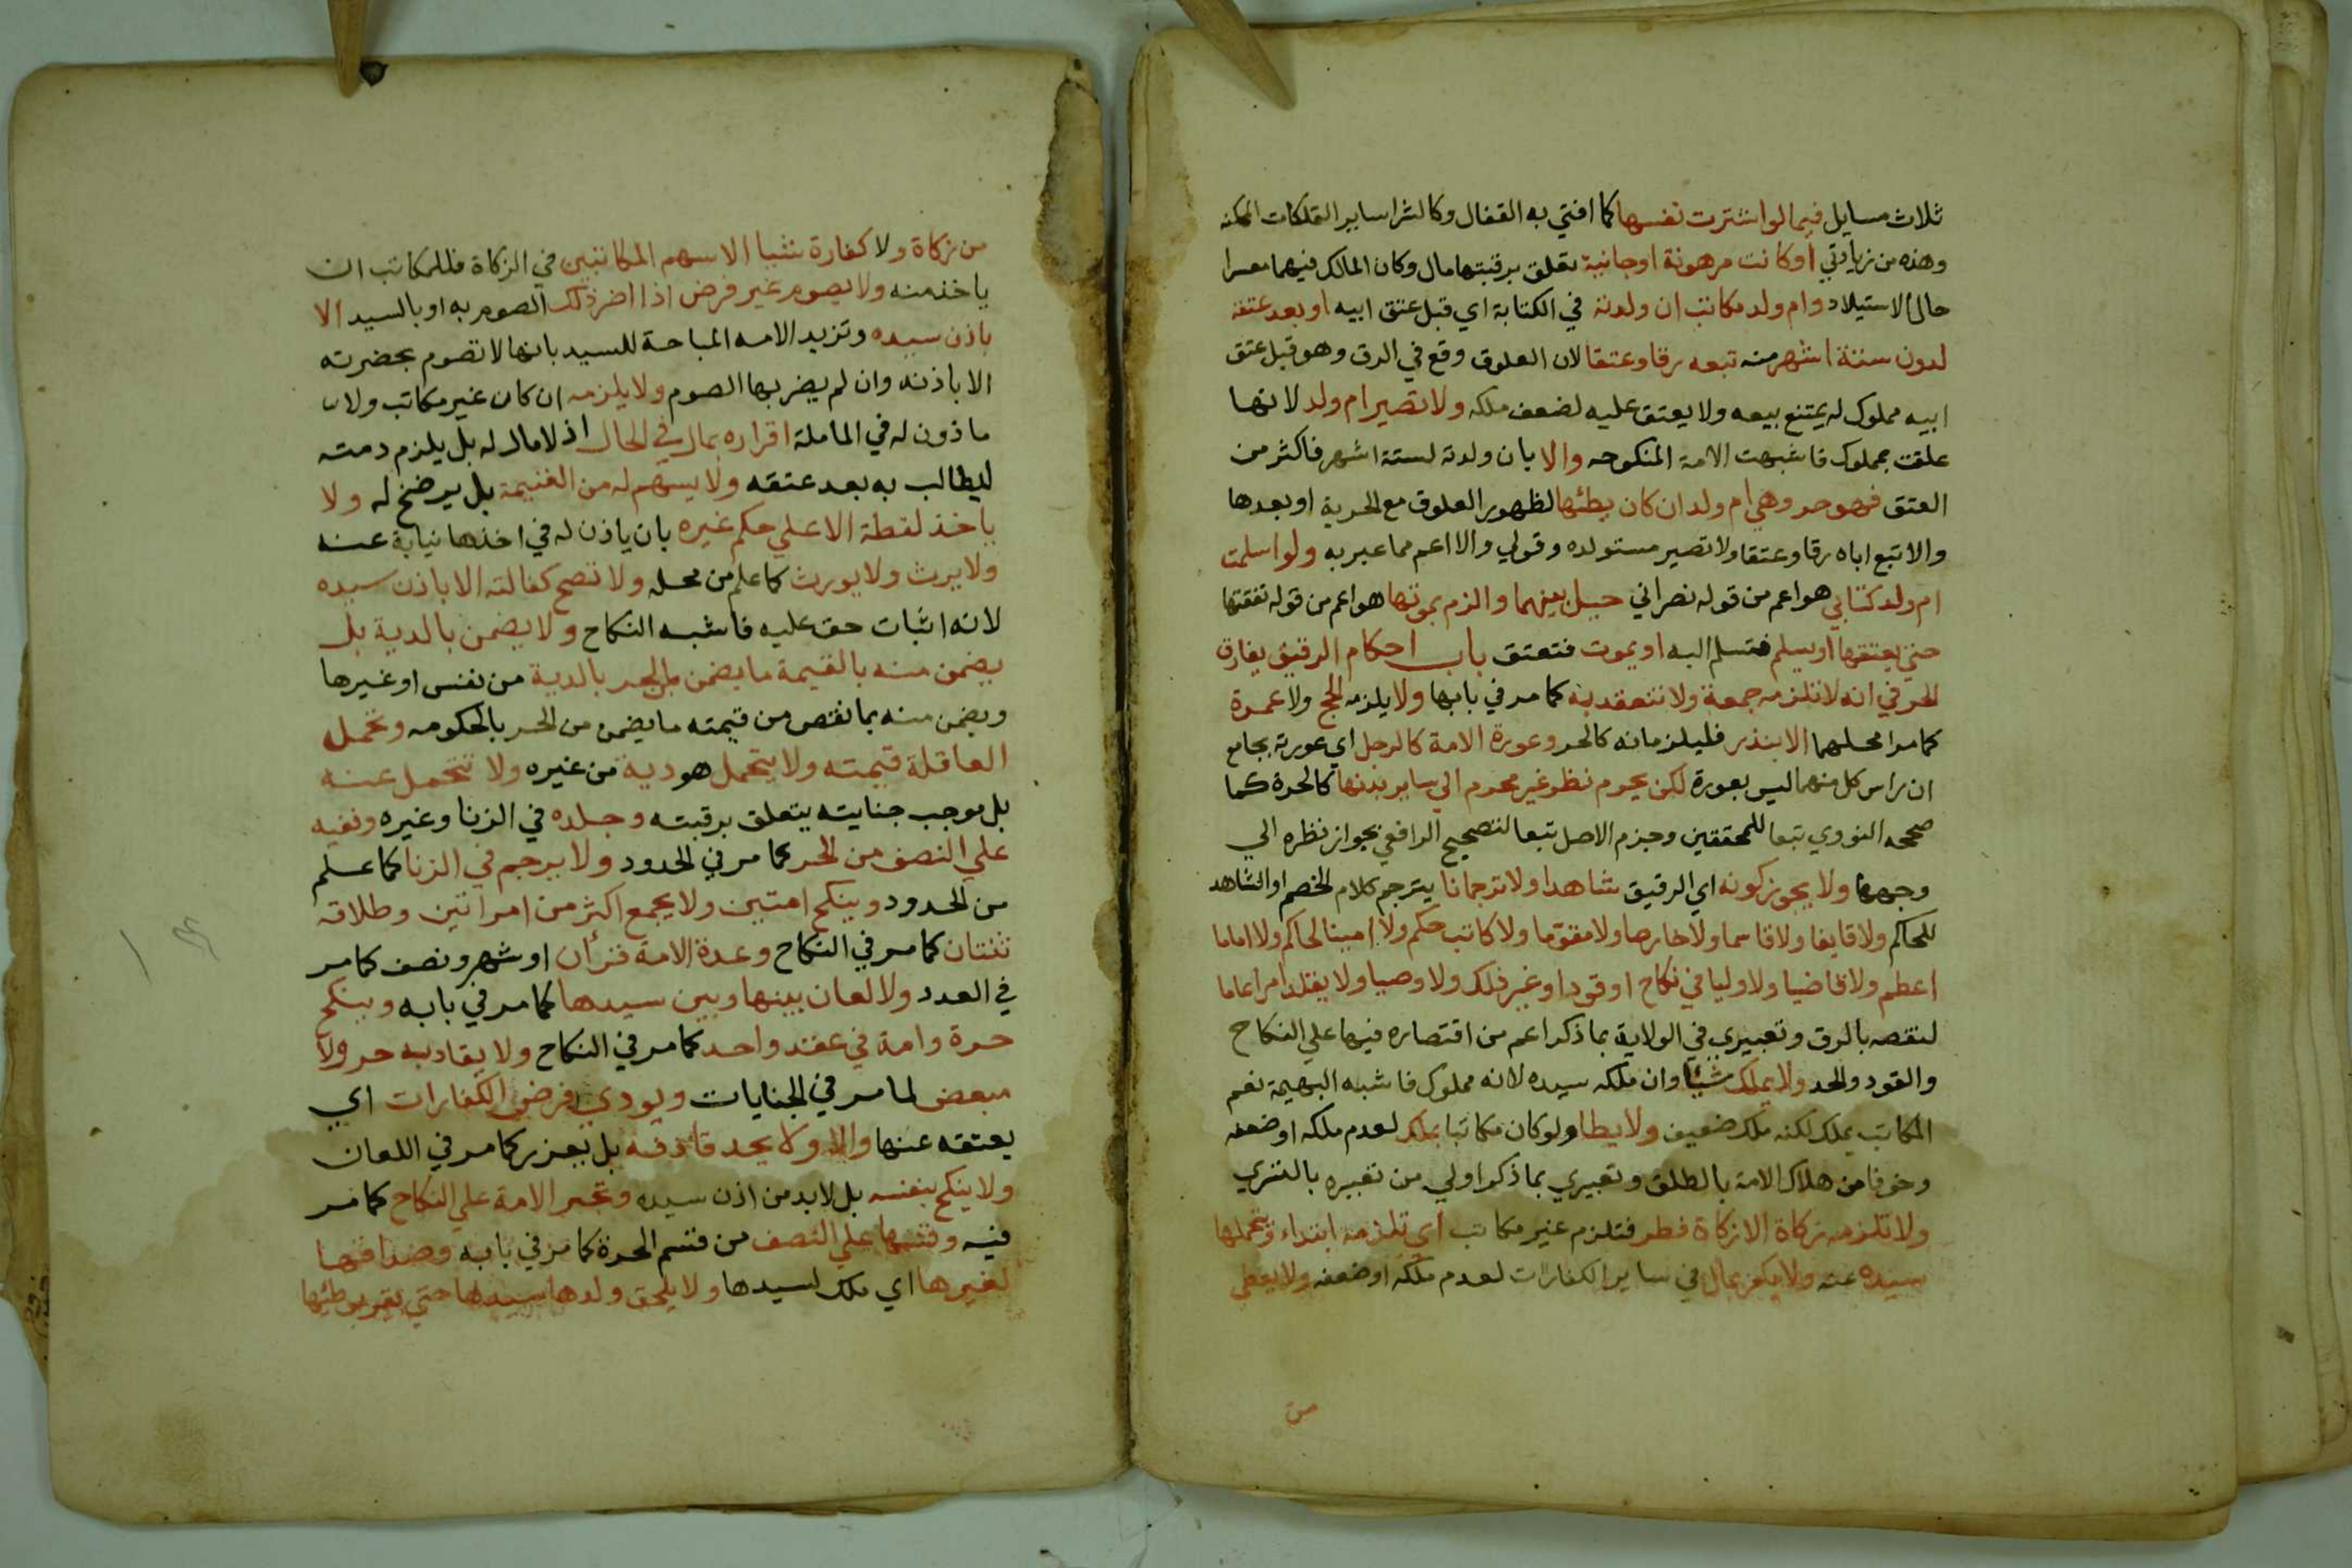 ثلاث مسايل فيما لو اشترت نفسها كما افتي به القفال وكالشرا ساير التملكات الممكنه
وهذه من زيادتي او كانت مرهونة او جانية تعلق برقبتها مال وكان المالك فيهما معسرا
حال الاستيلاد وام ولد مكاتب ان ولدته في الكتابة اي قبل عتق ابيه او بعد عتقه
لدون ستة اشهر منه تبعه رقا وعتقا لان العلوق وقع في الرق وهو قبل عتق
ابيه مملوك له يمتنع بيعه ولا يعتق عليه لضعف ملكه ولا تصير ام ولد لانها
علقت بمملوك فاشبهت الامة المنكوحه والا بان ولدته لستة اشهر فاكثر من
العتق فهو حر وهي ام ولد ان كان يطئها لظهور العلوق مع الحرية او بعدها
والا تبع اباه رقا وعتقا ولا تصير مستولده وقولي والا اعم مما عبر به ولو اسلمت
ام ولد كتابي هو اعم من قوله نصراني حيل بينهما والزم بمونتها هو اعم من قوله نفقتها
حتي يعتقها او يسلم فتسلم اليه او يموت فتعتق باب احكام الرقيق يفارق
الحر في انه لا تلزمه جمعة ولا تنعقد به كما مر في بابها ولا يلزمه الحج ولا عمرة
كما مر في محلهما الا بنذر فليلزمانه كالحر وعورة الامة كالرجل اي عورته بجامع
ان راس كل منهما ليس بعورة لكن يحرم نظر غير محرم الي ساير بدنها كالحرة كما
صححه النووي تبعا للمحققين وجزم الاصل تبعا لتصحيح الرافعي بجواز نظره الي
وجهها ولا يجوز كونه اي الرقيق شاهدا ولا ترجمانا يترجم كلام الخصم او الشاهد
للحاكم ولا قايفا ولا قاسما ولا خارصا ولا مقوما ولا كاتب حكم ولا امينا لحاكم ولا اماما
اعظم ولا قاضيا ولا وليا في نكاح او قود او غير ذلك ولا وصيا ولا يقلد امرا عاما
لنقصه بالرق وتعبيري في الولاية بما ذكر اعم من اقتصاره فيها علي النكاح
والقود والحد ولا يملك شيئا وان ملكه سيده لانه مملوك فاشبه البهيمة نعم
المكاتب يملك لكنه ملك ضعيف ولا يطا ولو كان مكاتبا بملك لعدم ملكه او ضعفه
وخوفا من هلاك الامة بالطلق وتعبيري بما ذكر اولي من تعبيره بالتسري
ولا تلزمه زكاة الا زكاة فطر فتلزم غير مكاتب اي تلزمه ابتداء وتحملها
سيده عنه ولا يكفر بمال في ساير الكفارات لعدم ملكه او ضعفه ولا يعطي
من
من زكاة ولا كفارة شيا الا سهم المكاتبين في الزكاة فللمكاتب ان
ياخذ منه ولا يصوم غير فرض اذا اضر ذلك الصوم به او بالسيد الا
باذن سيده وتزيد الامه المباحة للسيد بانها لا تصوم بحضرته
الا باذنه وان لم يضر بها الصوم ولا يلزمه ان كان غير مكاتب ولا
ماذون له في المعاملة اقراره بمال في الحال اذ لا مال له بل يلزم دمته
ليطالب به بعد عتقه ولا يسهم له من الغنيمة بل يرضخ له ولا
ياخذ لقطة الا علي حكم غيره بان ياذن له في اخذها نيابة عنه
ولا يرث ولا يورث كما علم من محله ولا تصح كفالته الا باذن سيده
لانه اثبات حق عليه فاشبه النكاح ولا يضمن بالدية بل
يضمن منه بالقيمة ما يضمن من الحر بالدية من نفس او غيرها
ويضمن منه بما نقص من قيمته ما يضمن من الحر بالحكومه وتحمل
العاقلة قيمته ولا يتحمل هو دية من غيره ولا تتحمل عنه
بل موجب جنايته يتعلق برقبته وجلده في الزنا وغيره ونفيه
علي النصف من الحر كما مر في الحدود ولا يرجم في الزنا كما علم
من الحدود وينكح امتين ولا يجمع اكثر من امراتين وطلاقه
ثنتان كما مر في النكاح وعدة الامة قرأن او شهر ونصف كما مر
في العدد ولا لعان بينها وبين سيدها كما مر في بابه وينكح
حرة وامة في عقد واحد كما مر في النكاح ولا يقاد به حر ولا
مبعض لما مر في الجنايات ويودي فرض الكفارات اي
يعتقه عنها ولا يحد قاذفه بل يعزر كما مر في اللعان
ولا ينكح بنفسه بل لابد من اذن سيده وتجبر الامة علي النكاح كما مر
فيه وقسمها علي النصف من قسم الحرة كما مر في بابه وصداقها
لغيرها اي ملك لسيدها ولا يلحق ولدها سيدها حتي يقر بوطئها